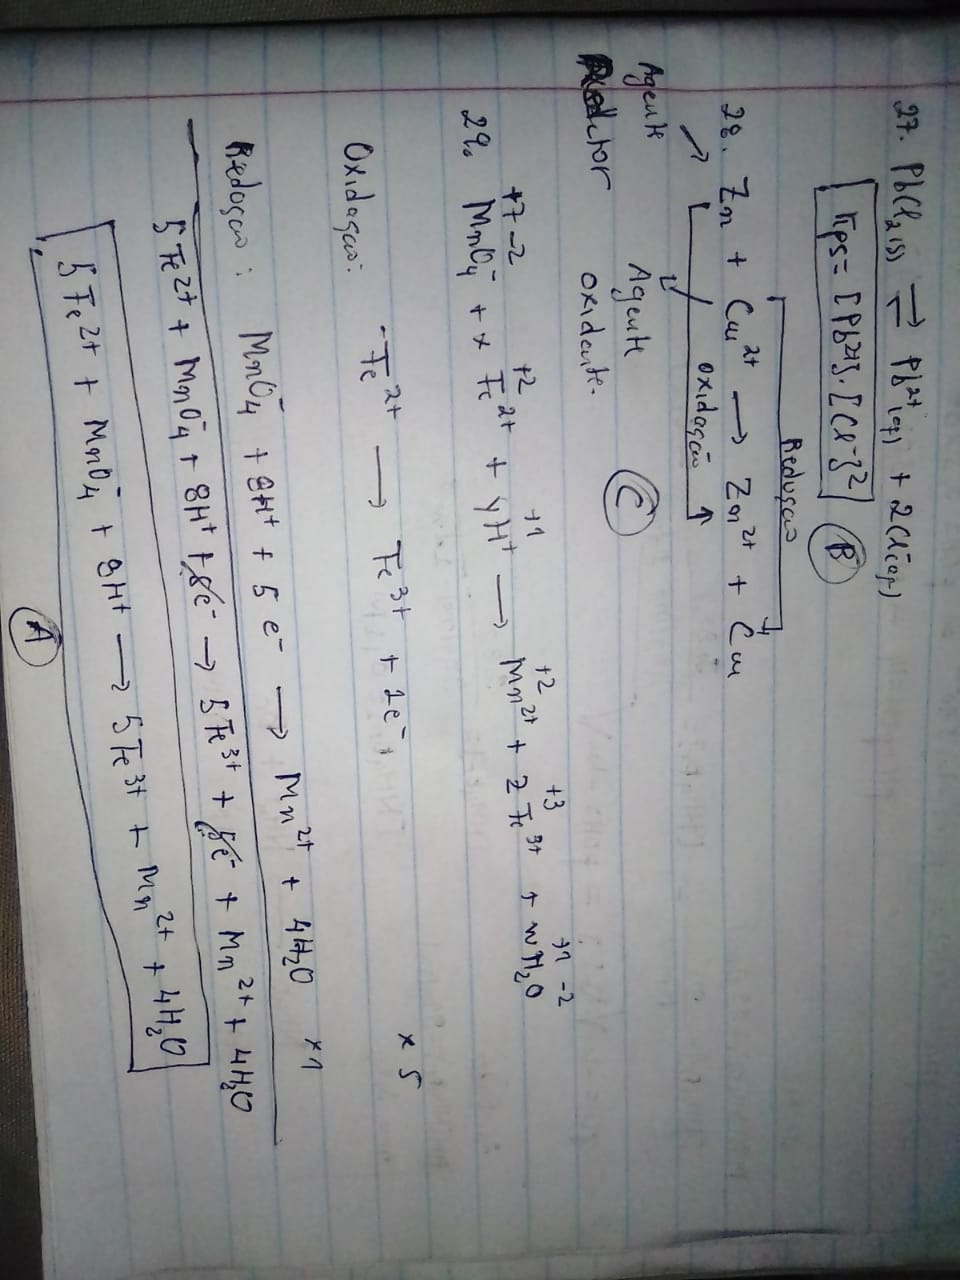 27. PbCl₂(s) ⇌ Pb²⁺(aq) + 2Cl⁻(aq)
Kps = [Pb²⁺].[Cl⁻]² B
Redução
28. Zn + Cu²⁺ → Zn²⁺ + Cu
oxidação
Agente Agente
Redutor oxidante. C
+7 -2 +2 +1 +2 +3 +1 -2
29. MnO₄⁻ + x Fe²⁺ + yH⁺ → Mn²⁺ + z Fe³⁺ + wH₂O
Oxidação: Fe²⁺ → Fe³⁺ + 1e⁻ x 5
Redução: MnO₄⁻ + 8H⁺ + 5e⁻ → Mn²⁺ + 4H₂O x 1
5Fe²⁺ + MnO₄⁻ + 8H⁺ + 5e⁻ → 5Fe³⁺ + 5e⁻ + Mn²⁺ + 4H₂O
5Fe²⁺ + MnO₄⁻ + 8H⁺ → 5Fe³⁺ + Mn²⁺ + 4H₂O
A